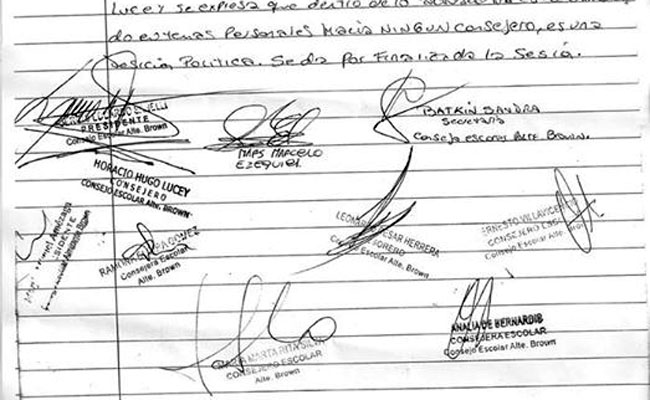 Lucey se expresa que dentro de lo
do en temas Personales hacia NINGUN Consejero, es una
Posición Política. Se da por Finalizada la Sesión.
PRESIDENTE
Consejo Escolar Alte. Brown
MAPS MARCELO
EZEQUIEL
BATKIN SANDRA
Secretaria
Consejo Escolar Alte Brown.
HORACIO HUGO LUCEY
CONSEJERO
CONSEJO ESCOLAR ALTE. BROWN
RAMONA
Consejera Escolar
Alte. Brown
CESAR HERRERA
Consejo Escolar Alte. Brown
ERNESTO VILLAVICENCIO
CONSEJERO
Consejo Escolar Alte. Brown
MARTA RITA
CONSEJERO ESCOLAR
Alte. Brown
ANALIA DE BERNARDIS
CONSEJERA ESCOLAR
Consejo Escolar Alte. Brown